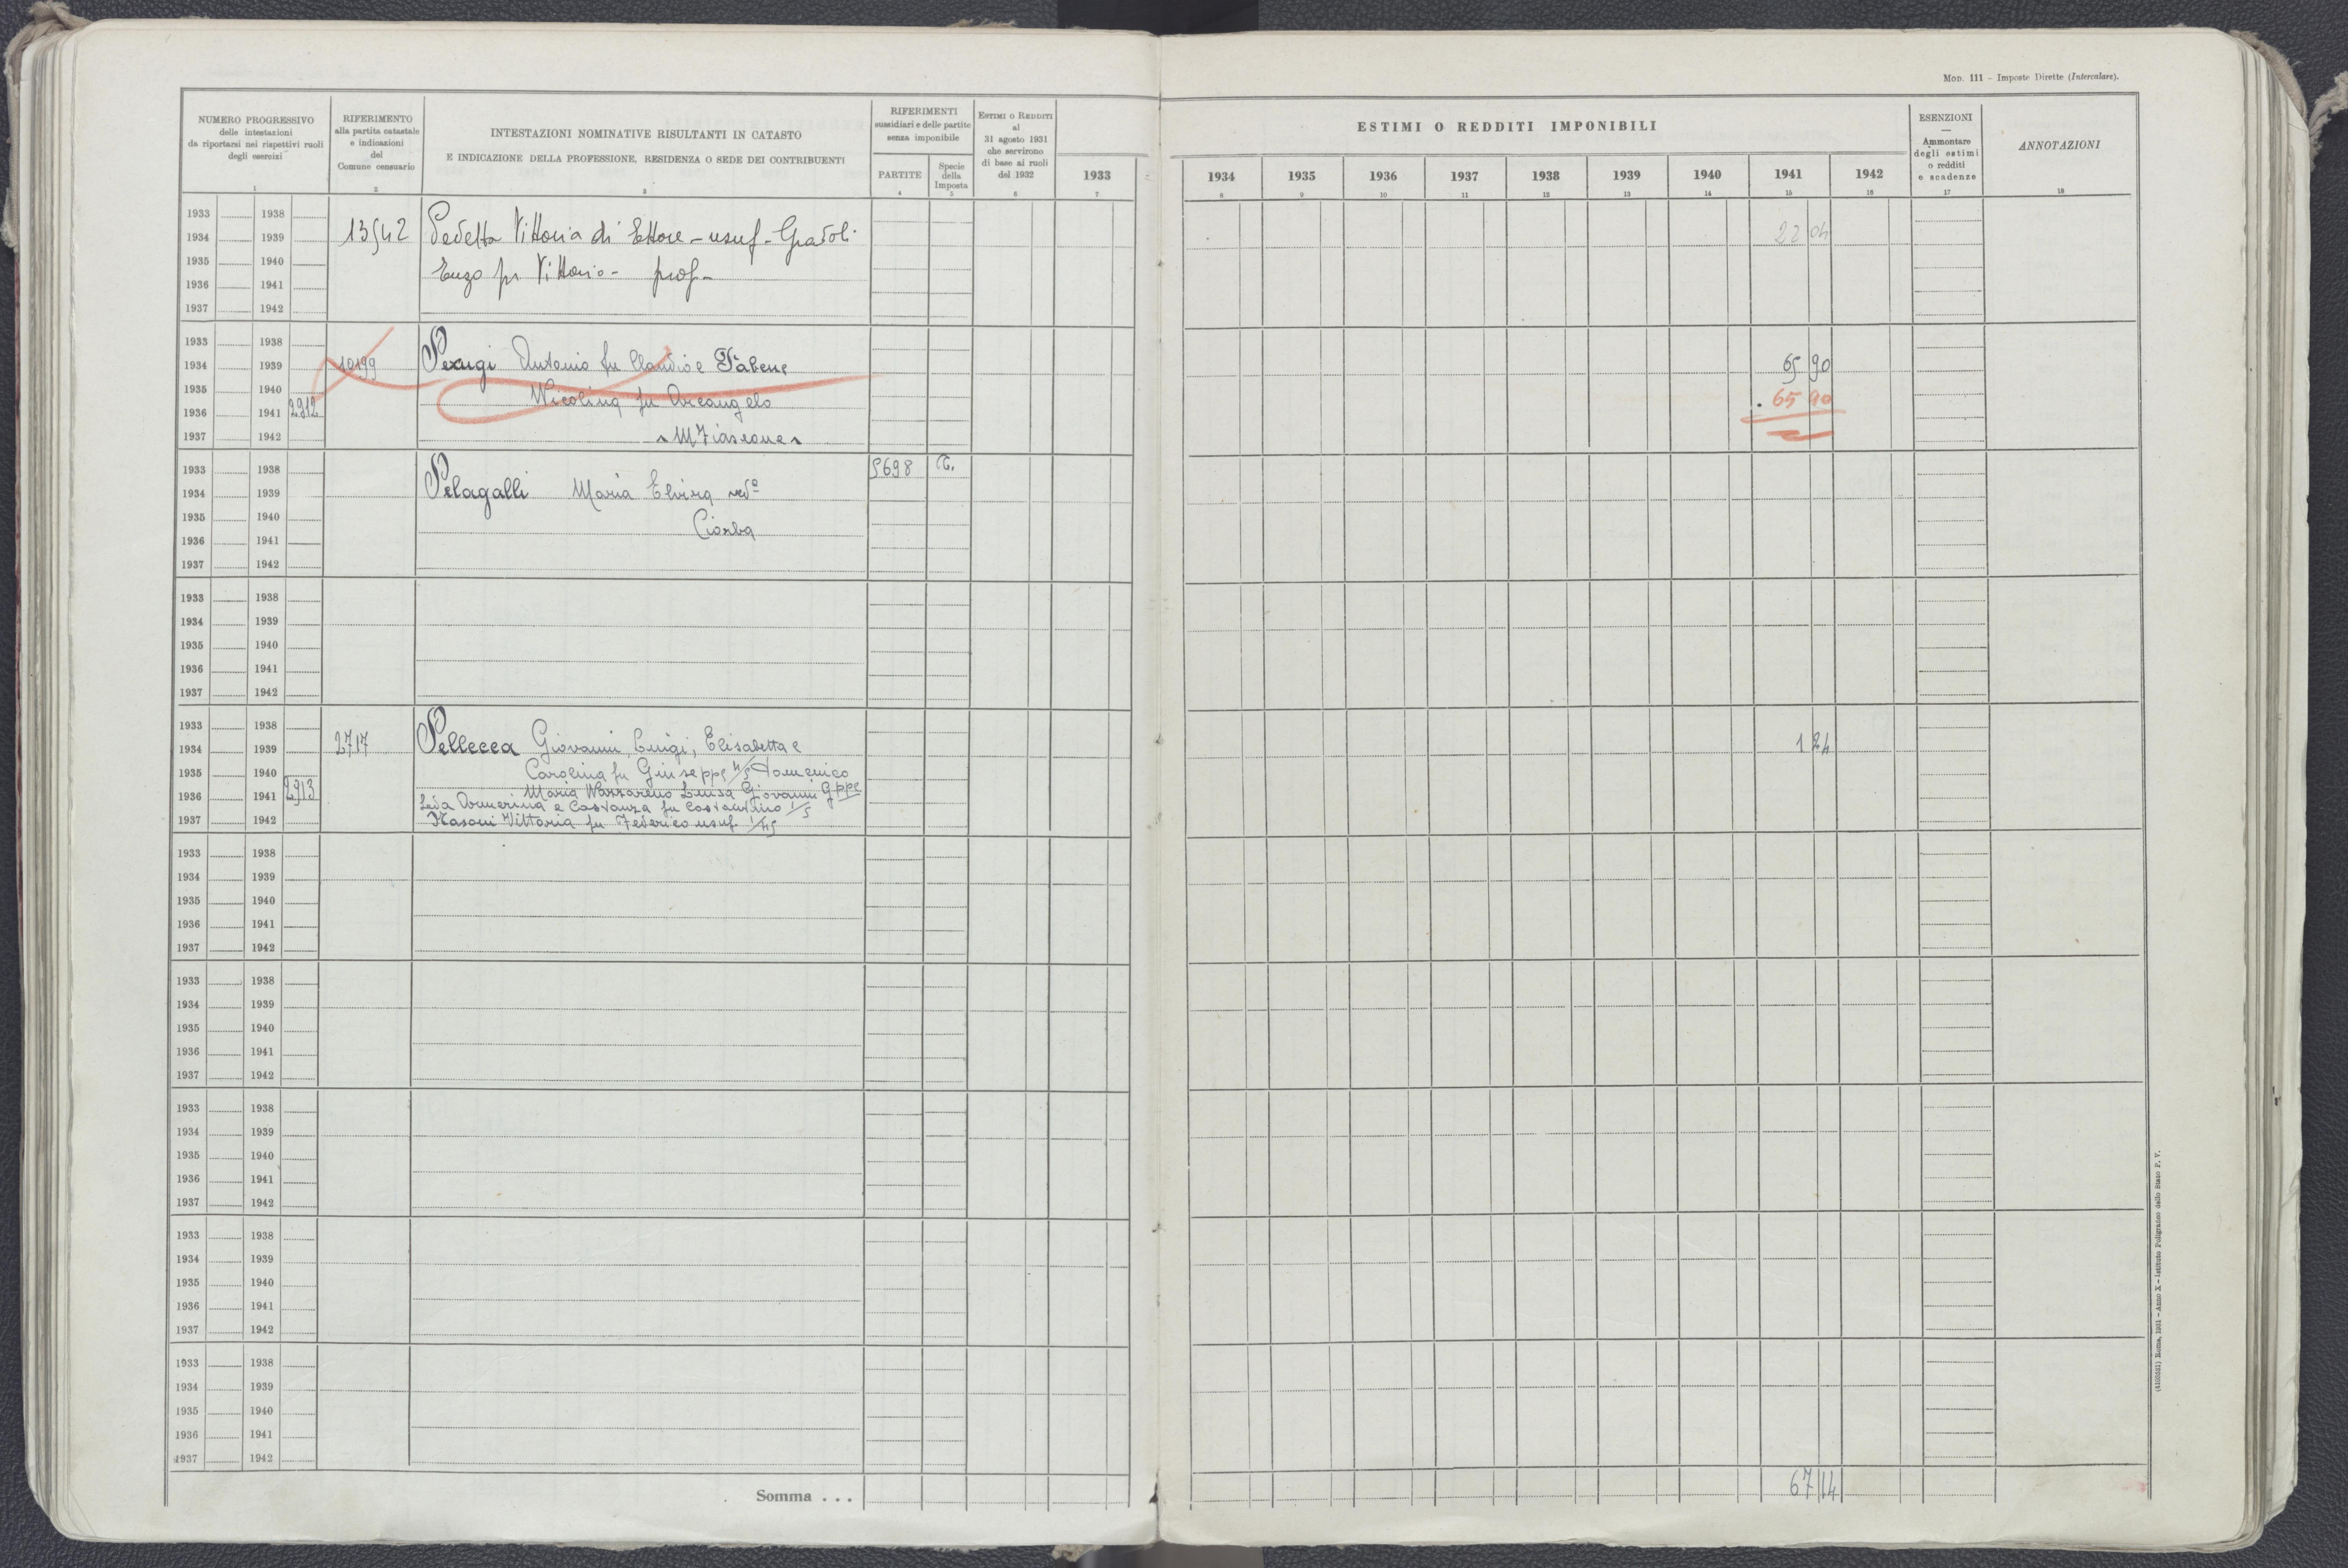 Mod. 111 - Imposte Dirette (Intercalare).
NUMERO PROGRESSIVO
delle intestazioni
da riportarsi nei rispettivi ruoli
degli esercizi
1
RIFERIMENTO
alla partita catastale
e indicazioni
del
Comune censuario
2
INTESTAZIONI NOMINATIVE RISULTANTI IN CATASTO
E INDICAZIONE DELLA PROFESSIONE, RESIDENZA O SEDE DEI CONTRIBUENTI
3
RIFERIMENTI
sussidiari e delle partite
senza imponibile
PARTITE
4
Specie
della
Imposta
5
ESTIMI O REDDITI
al
31 agosto 1931
che servirono
di base ai ruoli
del 1932
6
1933
7
ESTIMI O REDDITI IMPONIBILI
1934 1935 1936 1937 1938 1939 1940 1941 1942
8 9 10 11 12 13 14 15 16
ESENZIONI
Ammontare
degli estimi
o redditi
e scadenze
17
ANNOTAZIONI
18
1933 1938
1934 1939 13542 Pedetta Vittoria di Ettore - usuf - Gradoli 22 04
1935 1940
Enzo pr Vittorio - prof -
1936 1941
1937 1942
1933 1938
1934 1939 10199 Perugi Antonio fu Claudio e Fabene 65 90
1935 1940
Nicolina fu Arcangelo 65 90
1936 1941 2912
1937 1942 M Fiascone
1933 1938 5698 T.
1934 1939 Pelagalli Maria Elvira ved.a
1935 1940
Ciorba
1936 1941
1937 1942
1933 1938
1934 1939
1935 1940
1936 1941
1937 1942
1933 1938
1934 1939 2717 Pellecca Giovanni, Luigi, Elisabetta e 1 24
1935 1940 Carolina fu Giuseppe 4/5 Domenico
1936 1941 2913 Maria Nazzareno Luisa Giovanni Gppe
Leda Armerina e Costanza fu Costantino 1/5
1937 1942 Masoni Vittoria fu Federico usuf. 1/45
1933 1938
1934 1939
1935 1940
1936 1941
1937 1942
1933 1938
1934 1939
1935 1940
1936 1941
1937 1942
1933 1938
1934 1939
1935 1940
1936 1941
1937 1942
1933 1938
1934 1939
1935 1940
1936 1941
1937 1942
1933 1938
1934 1939
1935 1940
1936 1941
1937 1942
Somma . . . 67 14
Roma, 1931 - Anno X - Istituto Poligrafico dello Stato P. V.